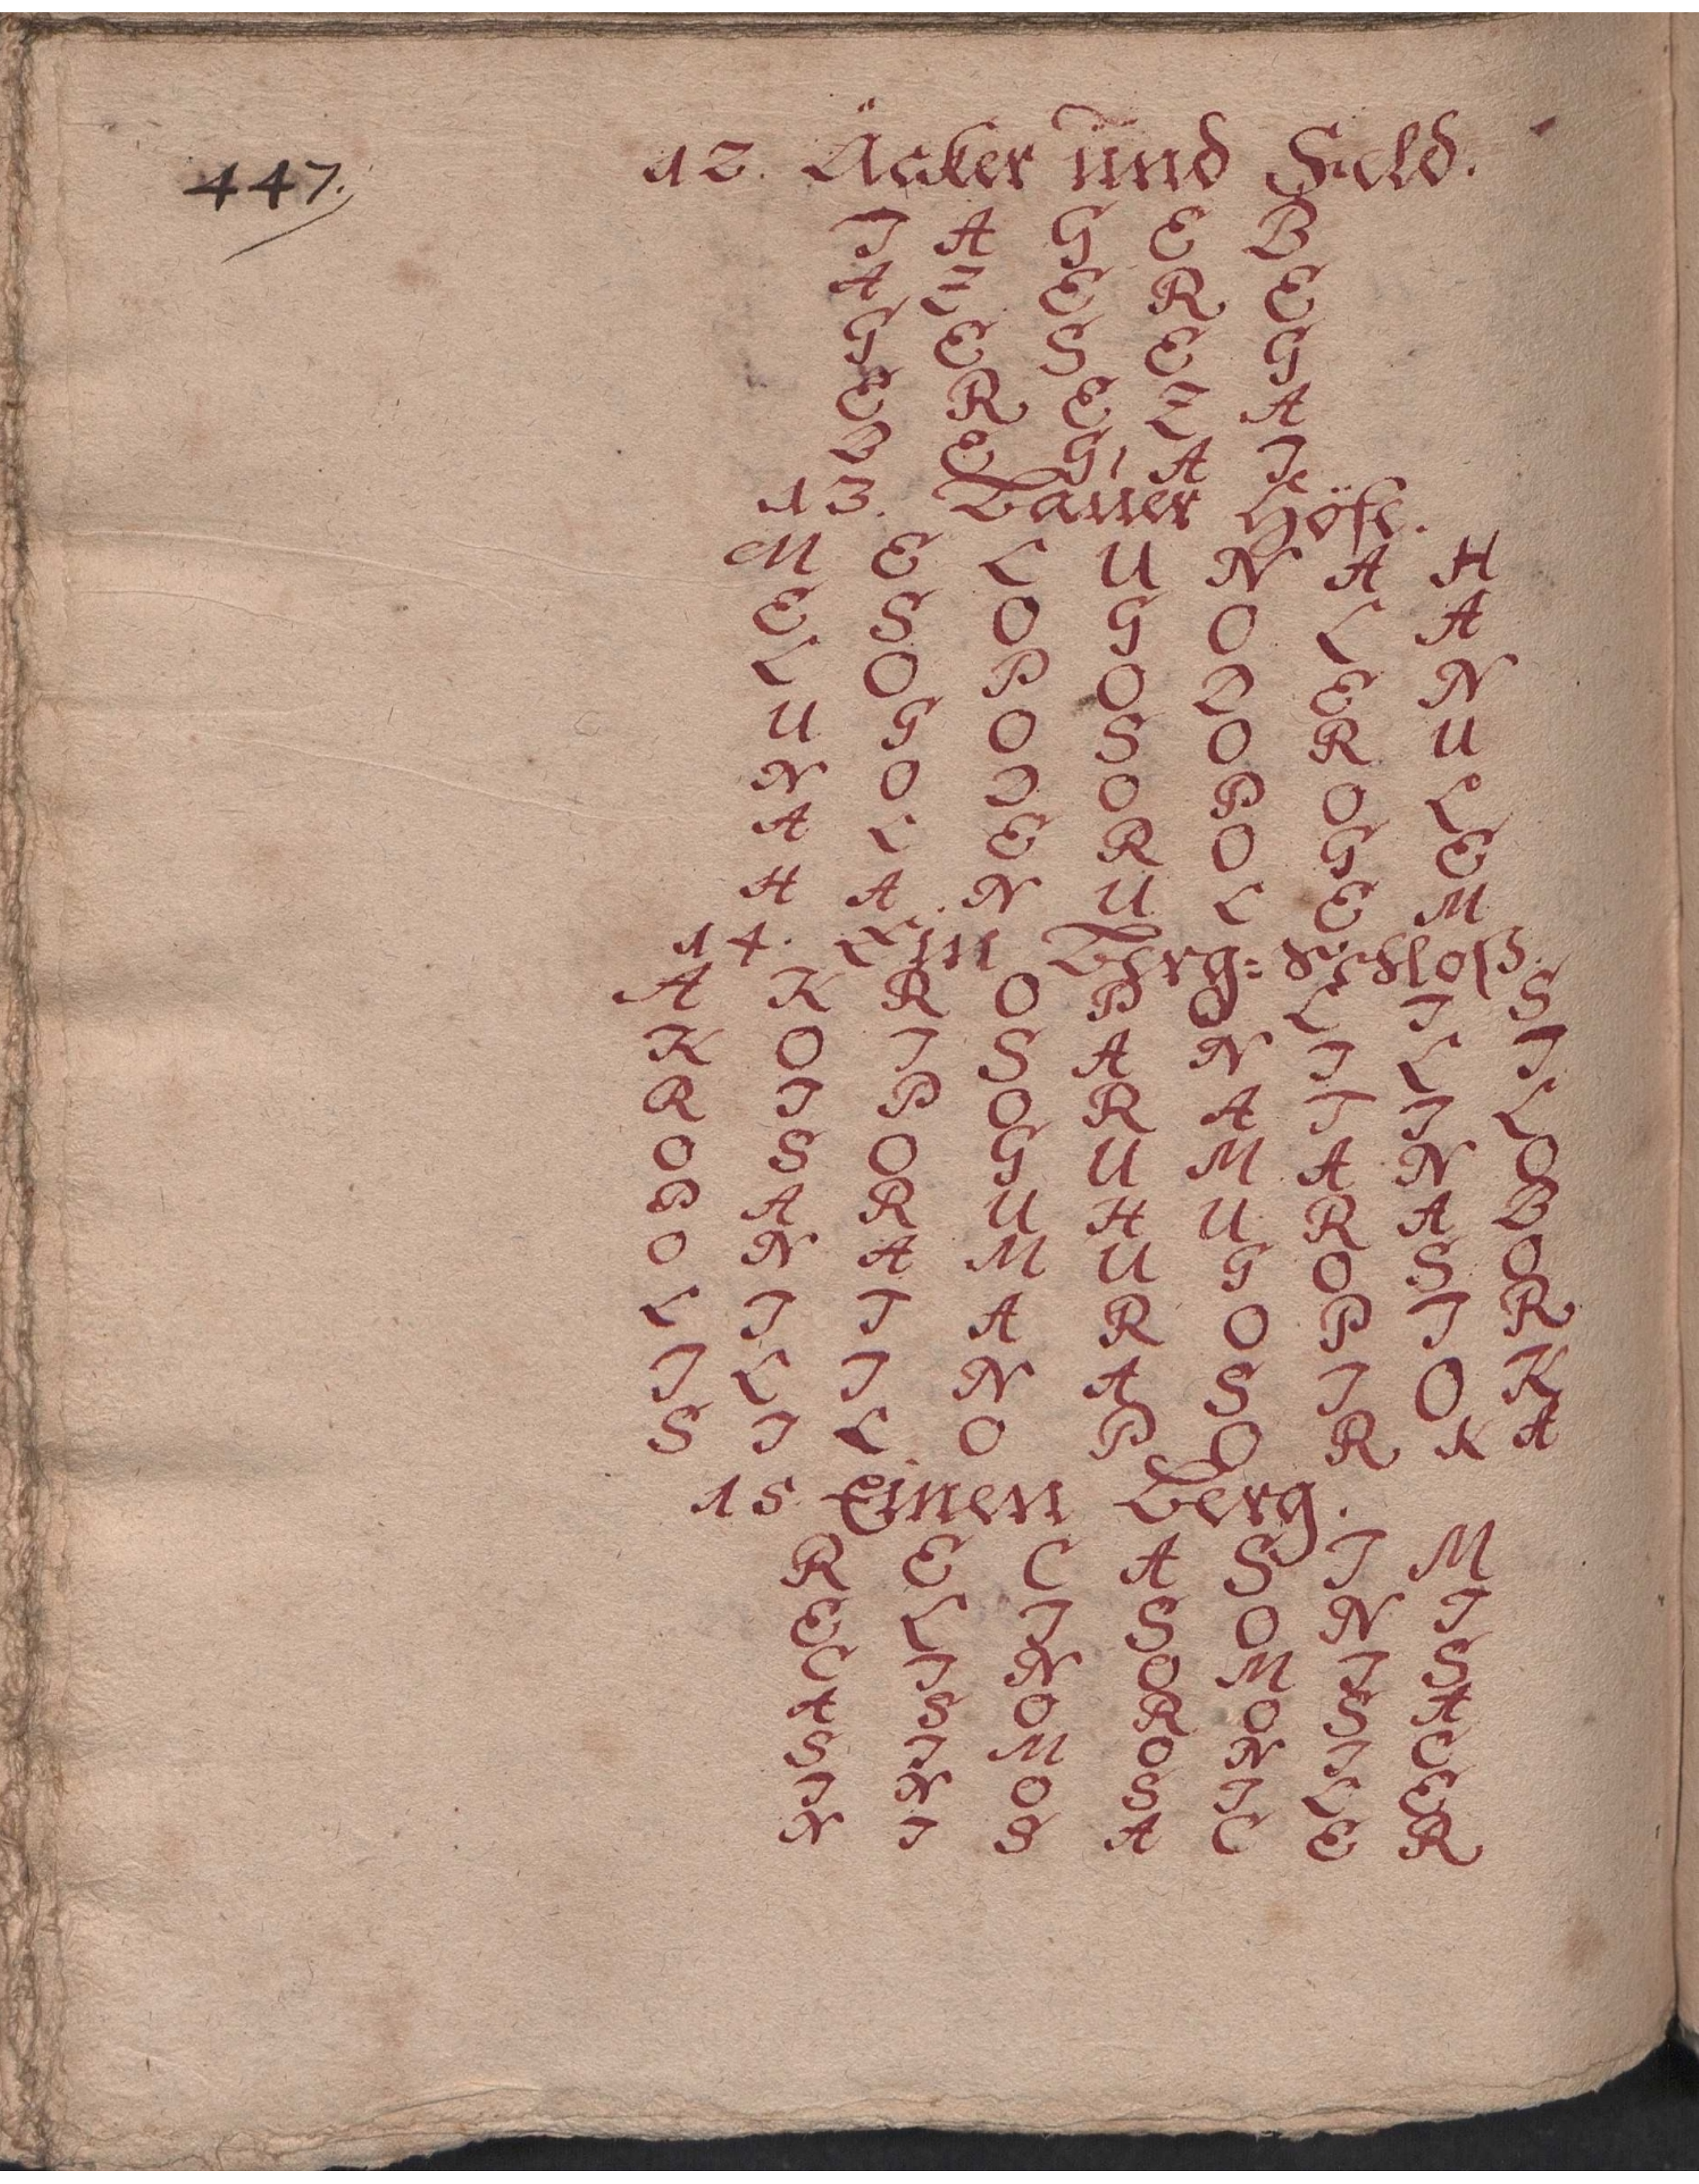 447.
12. Äcker und Feld.
I A G E B
A Z E R E
G E S E G
E R E Z A
B E G A I
13. Bauer Höfe.
M E L U N A H
E S O G O L A
L O P O D E N
U G O S O R U
N O D O P O L
A L E R O G E
H A N U L E M
14. Ein Berg=Schloß.
A K R O P O L I S
K O I S A N I L I
R I P O R A T I L
O S O G U M A N O
P A R U H U R A B
O N A M U G O S O
L I T A R O P I R
I L I N A S I O K
S I L O P O R K A
15 Einen Berg.
R E C A S I M
E L I S O N I
C I N O M I S
A S O R O S A
S I M O N I C
I N O S I L E
N I S A C E R